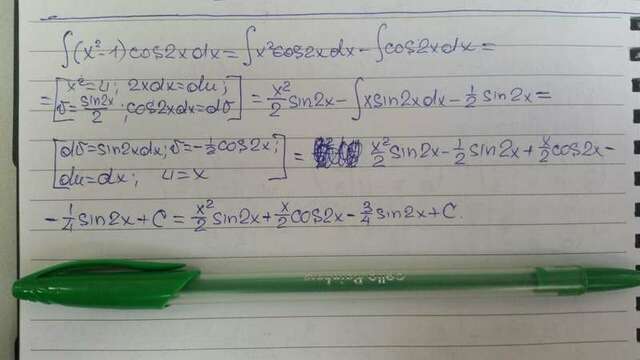 ∫(x²-1)cos2xdx=∫x²cos2xdx-∫cos2xdx=
=[x²=u; 2xdx=du; v=sin2x/2; cos2xdx=dv]=x²/2 sin2x-∫xsin2xdx-1/2 sin2x=
[dv=sin2xdx; v=-1/2 cos2x; du=dx; u=x]= x²/2 sin2x-1/2 sin2x+x/2 cos2x-
-1/4 sin2x+C=x²/2 sin2x+x/2 cos2x-3/4 sin2x+C.